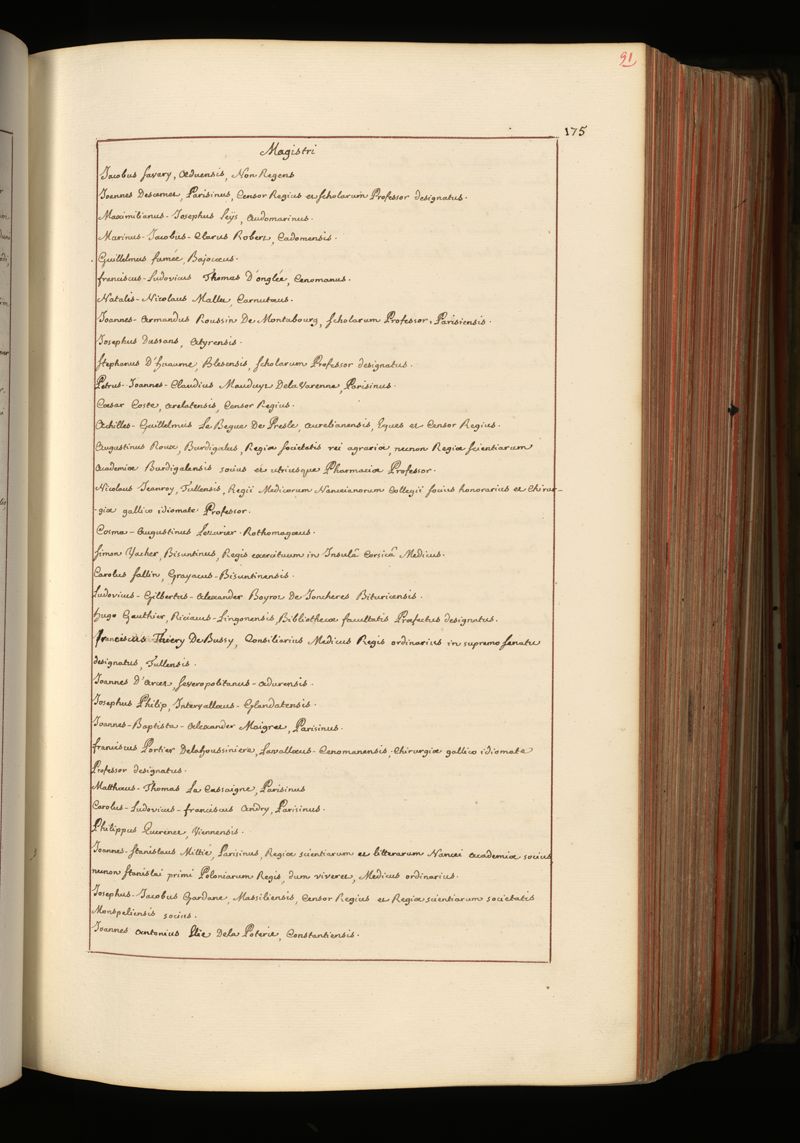 91
175
Magistri
Jacobus Savary, Æduensis, Non Regens
Joannes Descemet, Parisinus, Censor Regius et scholarum Professor designatus.
Maximilianus-Josephus Leÿs, Audomarinus.
Marinus-Jacobus-Clarus Robert, Cadomensis.
Guillelmus fumée, Bajocæus.
franciscus-Ludovicus Thomas D'onglée, Cenomanus.
Natalis-Nicolaus Mallet, Carnutæus.
Joannes-Armandus Roussin De Montabourg, scholarum Professor, Parisiensis.
Josephus Dassans, Atyrensis.
Stephanus D'huaume, Blesensis, scholarum Professor designatus.
Petrus-Joannes-Claudius Mauduyt Dela Varenne, Parisinus.
Cæsar Coste, Arelatensis, Censor Regius.
Achilles-Guillelmus Le Begue De Presle, Aurelianensis, Eques et Censor Regius.
Augustinus Roux, Burdigalus, Regiæ Societatis rei agrariæ, necnon Regiæ scientiarum
Academiæ Burdigalensis socius et utriusque Pharmaciæ Professor.
Nicolaus Jeanroy, Tullensis, Regii Medicorum Nanceianorum Collegii socius honorarius et Chirur-
-giæ gallico idiomate Professor.
Cosma-Augustinus Lezurier, Rothomagæus.
Simon Vacher, Bisuntinus, Regis exercituum in Insulâ Corsicâ Medicus.
Carolus Sallin, Grayacus-Bisuntinensis.
Ludovicus-Gilbertus-Alexander Boyrot De Joncheres Bituricensis.
Hugo Gauthier, Riciacus-Lingonensis, Bibliothecæ facultatis Præfectus designatus.
franciscus Thiery De Bussy, Consiliarius Medicus Regis ordinarius in supremo senatu
designatus, Tullensis.
Joannes D'arcet, Severopolitanus-Adurensis.
Josephus Philip, Intervallæus-Glandatensis.
Joannes-Baptista-Alexander Maigret, Parisinus.
franciscus Portier Delahoussiniere, Lavallæus-Cenomanensis, Chirurgiæ gallico idiomate
Professor designatus.
Matthæus-Thomas La Cassaigne, Parisinus
Carolus-Ludovicus-franciscus Andry, Parisinus.
Philippus Querenet, Viennensis.
Joannes-Stanislaus Mittié, Parisinus, Regiæ scientiarum et litterarum Nancei Academiæ socius
necnon Stanislai primi Poloniarum Regis, dum viveret, Medicus ordinarius.
Josephus-Jacobus Gardane, Massiliensis, Censor Regius et Regiæ scientiarum societatis
Monspeliensis socius.
Joannes Antonius Elie Dela Poterie, Constantiensis.